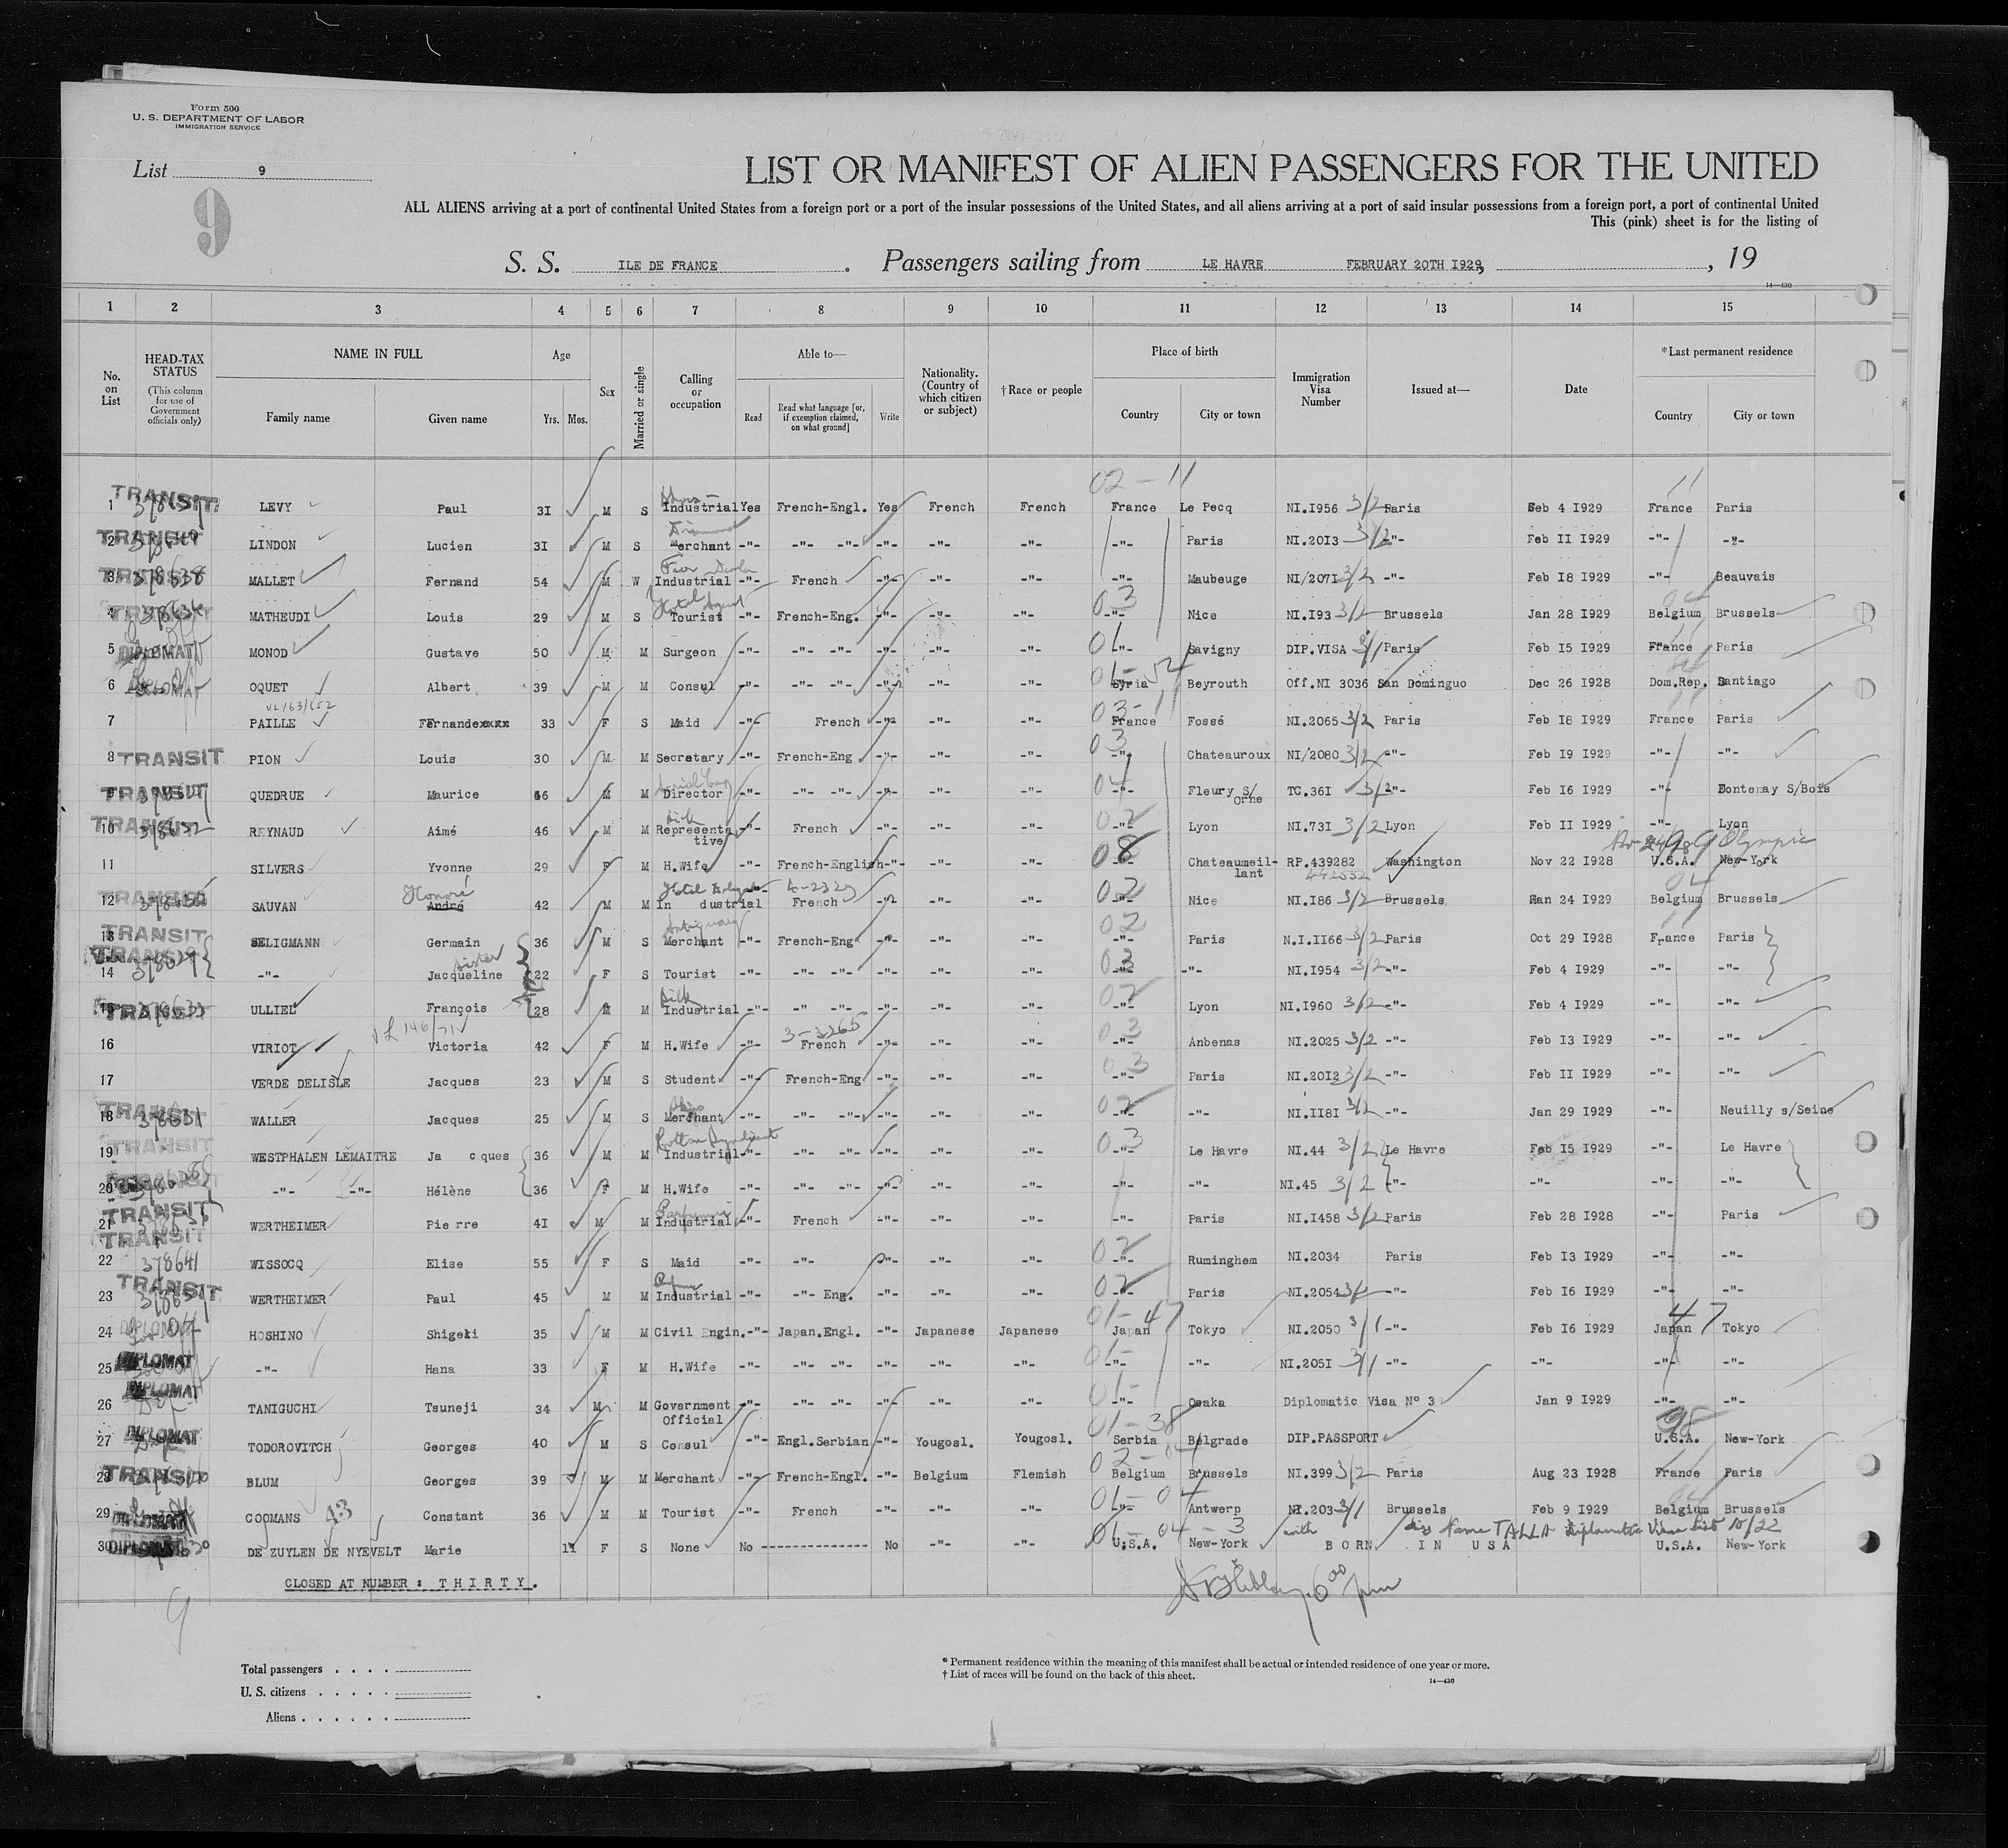 Form 500
U. S. DEPARTMENT OF LABOR
IMMIGRATION SERVICE
List 9
9
LIST OR MANIFEST OF ALIEN PASSENGERS FOR THE UNITED
ALL ALIENS arriving at a port of continental United States from a foreign port or a port of the insular possessions of the United States, and all aliens arriving at a port of said insular possessions from a foreign port, a port of continental United
This (pink) sheet is for the listing of
S. S. ILE DE FRANCE . Passengers sailing from LE HAVRE FEBRUARY 20TH I929, , 19
14—430
1 2 3 4 5 6 7 8 9 10 11 12 13 14 15
No. on List HEAD-TAX STATUS (This column for use of Government officials only) NAME IN FULL Family name Given name Age Yrs. Mos. Sex Married or single Calling or occupation Able to— Read Read what language [or, if exemption claimed, on what ground] Write Nationality. (Country of which citizen or subject) † Race or people Place of birth Country City or town Immigration Visa Number Issued at— Date * Last permanent residence Country City or town
02 - 11 11
1 TRANSIT LEVY Paul 3I M S Industrial Yes French-Engl. Yes French French France Le Pecq NI.I956 3/2 Paris Feb 4 I929 France Paris
2 TRANSIT LINDON Lucien 3I M S Merchant -"- -"- -"- -"- -"- -"- -"- Paris NI.20I3 3/2 -"- Feb II I929 -"- -"-
3 378638 MALLET Fernand 54 M W Industrial -"- French -"- -"- -"- -"- Maubeuge NI/207I 3/2 -"- Feb I8 I929 -"- Beauvais
4 378636 MATHEUDI Louis 29 M S Hotel Agent Tourist -"- French-Eng. -"- -"- -"- 03 -"- Nice NI.I93 3/2 Brussels Jan 28 I929 Belgium Brussels
5 DIPLOMAT MONOD Gustave 50 M M Surgeon -"- -"- -"- -"- -"- -"- 01 -"- Savigny DIP.VISA 3/1 Paris Feb I5 I929 France Paris
6 DIPLOMAT OQUET Albert 39 M M Consul -"- -"- -"- -"- -"- -"- 01-52 Syria Beyrouth Off.NI 3036 San Dominguo Dec 26 I928 Dom.Rep. Santiago
7 PAILLE Fernande 33 F S Maid -"- French -"- -"- -"- 03-11 France Fossé NI.2065 3/2 Paris Feb I8 I929 France Paris
8 TRANSIT PION Louis 30 M M Secretary -"- French-Eng -"- -"- -"- 03 -"- Chateauroux NI/2080 3/2 -"- Feb I9 I929 -"- -"-
9 TRANSIT QUEDRUE Maurice 46 M M Director -"- -"- -"- -"- -"- -"- -"- Fleury S/Orne TC.36I 3/2 -"- Feb I6 I929 -"- Fontenay S/Bois
10 TRANSIT REYNAUD Aimé 46 M M Representative -"- French -"- -"- -"- 02 -"- Lyon NI.73I 3/2 Lyon Feb II I929 -"- Lyon
11 SILVERS Yvonne 29 F M H.Wife -"- French-English -"- -"- -"- 08 -"- Chateaumeillant RP.439282 Washington Nov 22 I928 U.S.A. New-York Olympic
12 SAUVAN Honoré André 42 M M In dustrial 4-2329 French -"- -"- -"- 02 -"- Nice NI.I86 3/2 Brussels Jan 24 I929 Belgium Brussels
13 TRANSIT SELIGMANN Germain 36 M S Antiquary Merchant -"- French-Eng. -"- -"- -"- 02 -"- Paris N.I.II66 3/2 Paris Oct 29 I928 France Paris
14 TRANSIT 378629 -"- Jacqueline sister 22 F S Tourist -"- -"- -"- -"- -"- -"- 03 -"- -"- NI.I954 3/2 -"- Feb 4 I929 -"- -"-
15 TRANSIT ULLIEL François 28 M M Silk Industrial -"- -" -"- -"- -"- -"- 02 -"- Lyon NI.I960 3/2 -"- Feb 4 I929 -"- -"-
16 VIRIOT Victoria 42 F M H.Wife -"- 3-3265 French -"- -"- -"- 03 -"- Anbenas NI.2025 3/2 -"- Feb I3 I929 -"- -"-
17 VERDE DELISLE Jacques 23 M S Student -"- French-Eng -"- -"- -"- 03 -"- Paris NI.20I2 3/2 -"- Feb II I929 -"- -"-
18 TRANSIT 378631 WALLER Jacques 25 M S Merchant -"- -"- -"- -"- -"- -"- 02 -"- -"- NI.II8I 3/2 -"- Jan 29 I929 -"- Neuilly s/Seine
19 TRANSIT WESTPHALEN LEMAITRE Ja c ques 36 M M Cotton Syndicat Industrial -"- -"- -"- -"- -"- -"- 03 -"- Le Havre NI.44 3/2 Le Havre Feb I5 I929 -"- Le Havre
20 -"- -"- Hélène 36 F M H.Wife -"- -"- -"- -"- -"- -"- -"- -"- NI.45 3/2 -"- -"- -"- -"-
21 TRANSIT WERTHEIMER Pie rre 4I M M Parfumeur Industrial -"- French -"- -"- -"- -"- Paris NI.I458 3/2 Paris Feb 28 I928 -"- Paris
22 TRANSIT 378641 WISSOCQ Elise 55 F S Maid -"- -"- -"- -"- -"- 02 -"- Ruminghem NI.2034 Paris Feb I3 I929 -"- -"-
23 TRANSIT WERTHEIMER Paul 45 M M Industrial -"- -"- Eng. -"- -"- -"- 02 -"- Paris NI.2054 3/2 -"- Feb I6 I929 -"- -"-
24 DIPLOMAT HOSHINO Shigeki 35 M M Civil Engin. -"- Japan.Engl. -"- Japanese Japanese 01-47 Japan Tokyo NI.2050 3/1 -"- Feb I6 I929 47 Japan Tokyo
25 DIPLOMAT -"- Hana 33 F M H.Wife -"- -"- -"- -"- -"- -"- 01- -"- -"- NI.205I 3/1 -"- -"- -"- -"-
26 DIPLOMAT TANIGUCHI Tsuneji 34 M M Government Official -"- -"- -"- -"- -"- -"- 01- -"- Osaka Diplomatic Visa N° 3 Jan 9 I929 -"- -"-
27 DIPLOMAT TODOROVITCH Georges 40 M S Consul -"- Engl.Serbian -"- Yougosl. Yougosl. 01-38 Serbia Belgrade DIP.PASSPORT 98 U.S.A. New-York
28 TRANSIT BLUM Georges 39 M M Merchant -"- French-Engl. -"- Belgium Flemish 02-04 Belgium Brussels NI.399 3/2 Paris Aug 23 I928 France Paris
29 DIPLOMAT COOMANS 43 Constant 36 M M Tourist -"- French -"- -"- -"- 01-04 -"- Antwerp NI.203 3/1 Brussels Feb 9 I929 Belgium Brussels
30 DIPLOMAT DE ZUYLEN DE NYEVELT Marie 11 F S None No No -"- -"- 01-04-3 U.S.A. New-York with BORN IN USA Name TALLA Diplomatic Visa U.S.A. New-York
CLOSED AT NUMBER: THIRTY.
6 00 pm
9
Total passengers
U. S. citizens
Aliens
* Permanent residence within the meaning of this manifest shall be actual or intended residence of one year or more.
† List of races will be found on the back of this sheet.
14—430